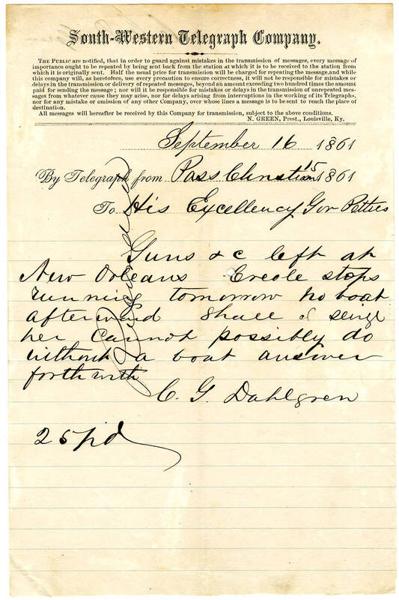 South-Western Telegraph Company.
THE PUBLIC are notified, that in order to guard against mistakes in the transmission of messages, every message of
importance ought to be repeated by being sent back from the station at which it is to be received to the station from
which it is originally sent. Half the usual price for transmission will be charged for repeating the message, and while
this company will, as heretofore, use every precaution to ensure correctness, it will not be responsible for mistakes or
delays in the transmission or delivery of repeated messages, beyond an amount exceeding two hundred times the amount
paid for sending the message; nor will it be responsible for mistakes or delays in the transmission of unrepeated mes-
sages from whatever cause they may arise, nor for delays arising from interruptions in the working of its Telegraphs,
nor for any mistake or omission of any other Company, over whose lines a message is to be sent to reach the place of
destination.
All messages will hereafter be received by this Company for transmission, subject to the above conditions.
N. GREEN, Prest., Louisville, Ky.
September 16 1861
By Telegraph from Pass Christian 15 1861
To His Excellency Gov Pettus
Guns &c left at
New Orleans Creole stops
running tomorrow no boat
afterward Shall I
her Cannot possibly do
without a boat answer
forthwith
C. G. Dahlgren
25 pd